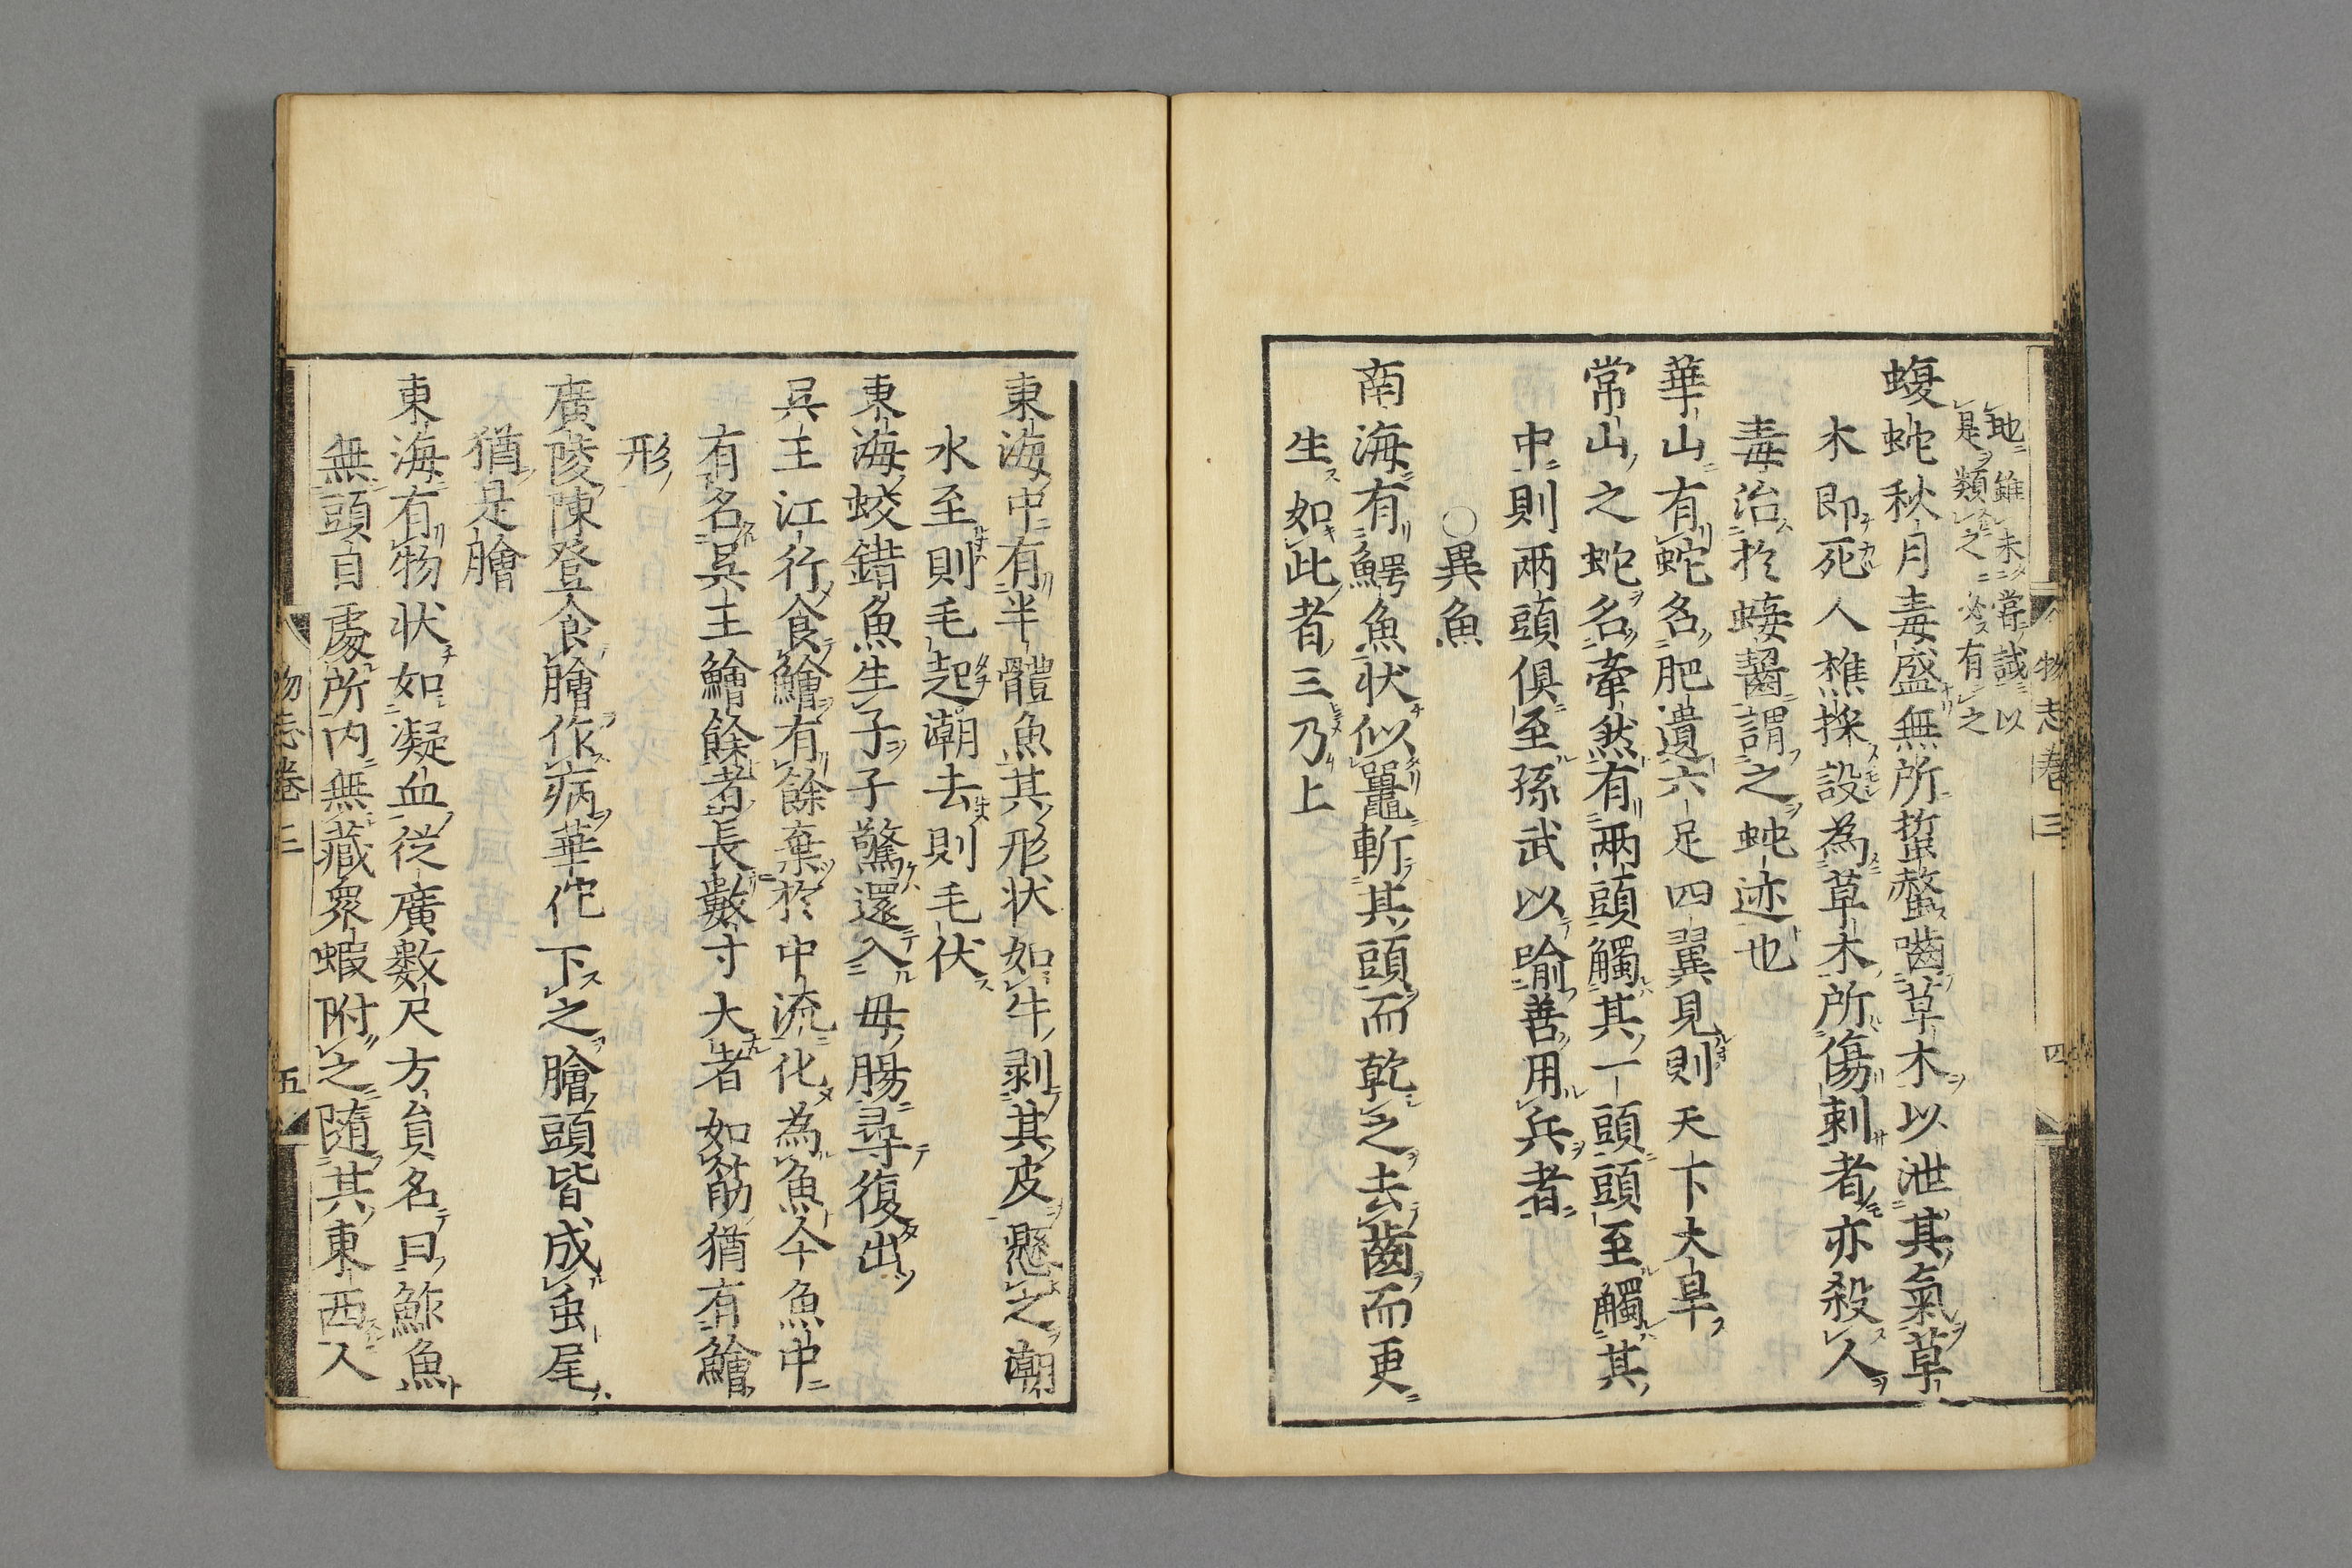 地雖未當誠以
是類之必有之
蝮蛇秋月毒盛無所蜇螫嚙草木以泄其氣草
木即死人樵採設為草木所傷刺者亦殺人
毒治於蝮齧謂之蛇迹也
華山有蛇名肥遺六足四翼見則天下大旱
常山之蛇名率然有兩頭觸其一頭頭至觸其
中則兩頭俱至孫武以喻善用兵者
○異魚
南海有鰐魚状似鼉斬其頭而乾之去齒而更
生如此者三乃上
物志卷三
四
東海中有半體魚其形状如牛剥其皮懸之潮
水至則毛起潮去則毛伏
東海蛟錯魚生子子驚還入母腸尋復出
吳王江行食鱠有餘棄於中流化為魚今魚中
有名吳王鱠餘者長數寸大者如筯猶有鱠
形
廣陵陳登食膾作病華佗下之膾頭皆成虫尾
猶是膾
東海有物状如凝血從廣數尺方員名曰鮓魚
無頭自處所内無藏衆蝦附之随其東西人
物志卷三
五